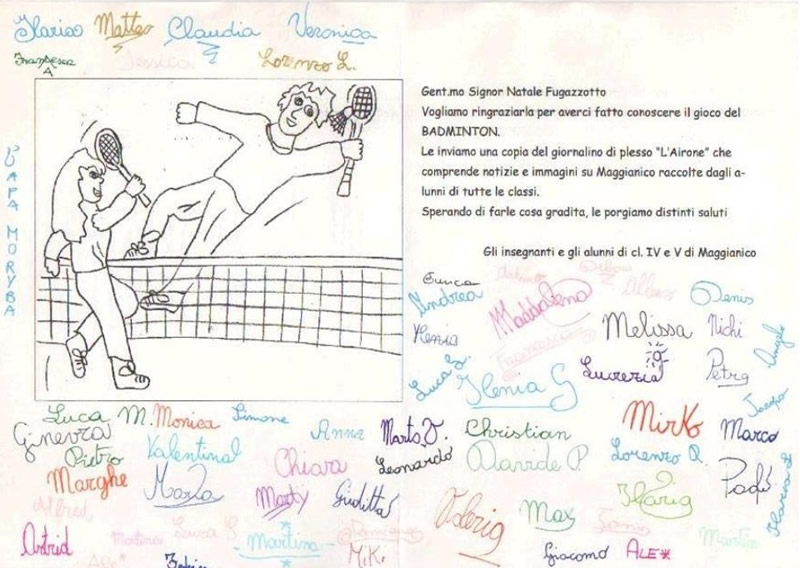 Ilaria Matteo Claudia Veronica
Francesca A Jessica Lorenzo L.
PAPA MORYBA
Gent.mo Signor Natale Fugazzotto
Vogliamo ringraziarla per averci fatto conoscere il gioco del
BADMINTON.
Le inviamo una copia del giornalino di plesso "L'Airone" che
comprende notizie e immagini su Maggianico raccolte dagli a-
lunni di tutte le classi.
Sperando di farle cosa gradita, le porgiamo distinti saluti
Gli insegnanti e gli alunni di cl. IV e V di Maggianico
Andrea Maddalena Denis
Melissa Michi
Luca S. Ilenia G Lucrezia Petra Angelo
Jacopo
Luca M. Monica Simone
Ginevra Anna Marta D. Christian Mirko Marco
Pietro Valentina Chiara Leonardo Davide P. Lorenzo R.
Marghe Marta Marty Giuditta Ilaria
Alfred Valeria Max
Astrid Martina Luca Martina Miki Giacomo ALE
Federico